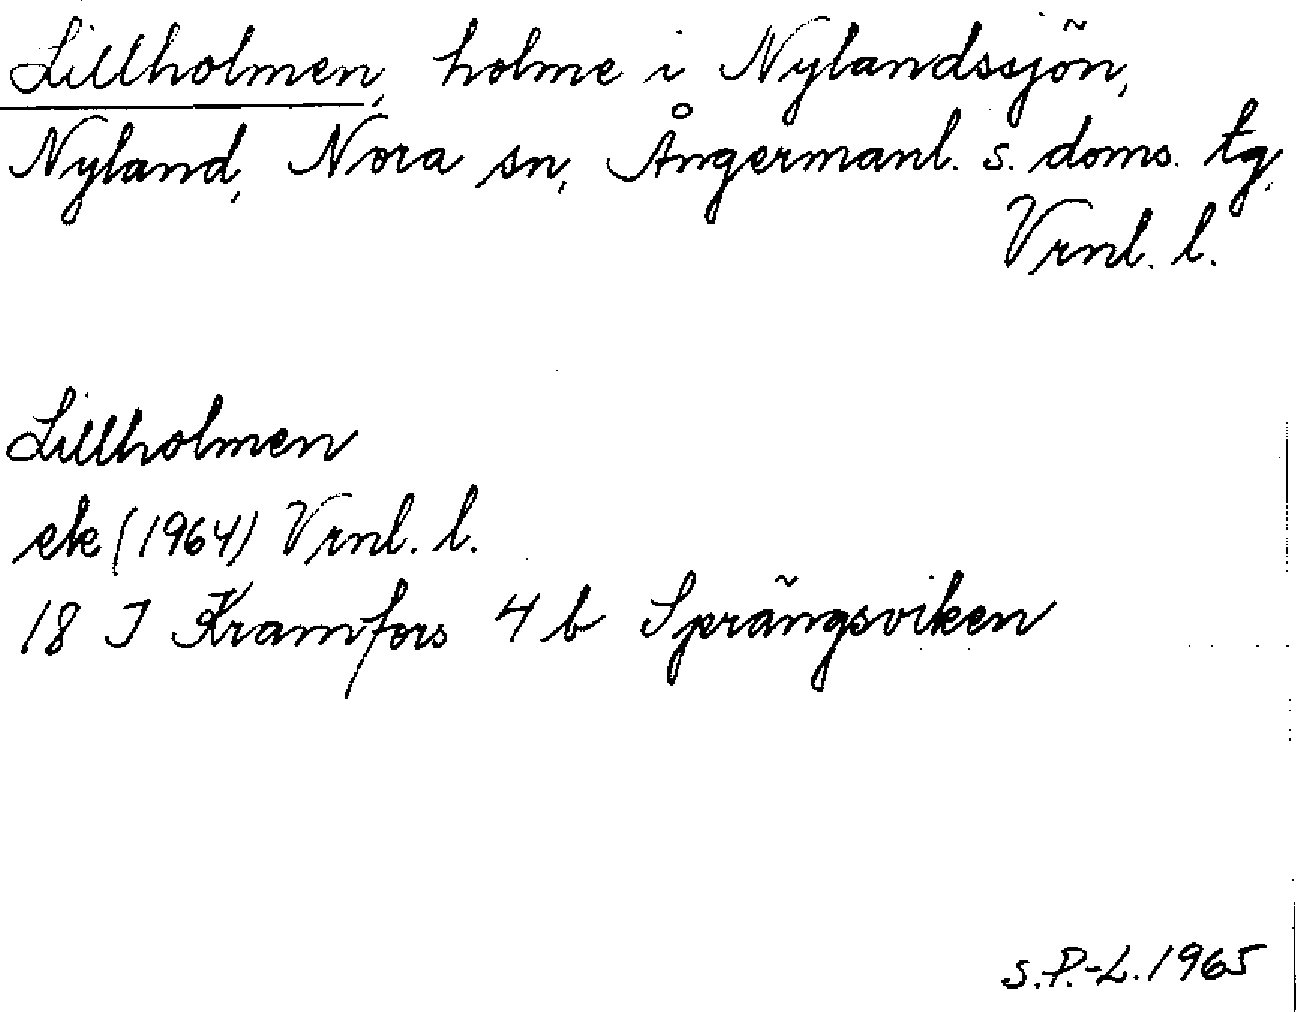 Lillholmen, holme i Nylandssjön,
Nyland, Nora sn, Ångermanl. s. doms. tg,
Vrnl. l.
Lillholmen
ek (1964) Vrnl. l.
18 I Kramfors 4 b Sprängsviken
S.P.-L. 1965